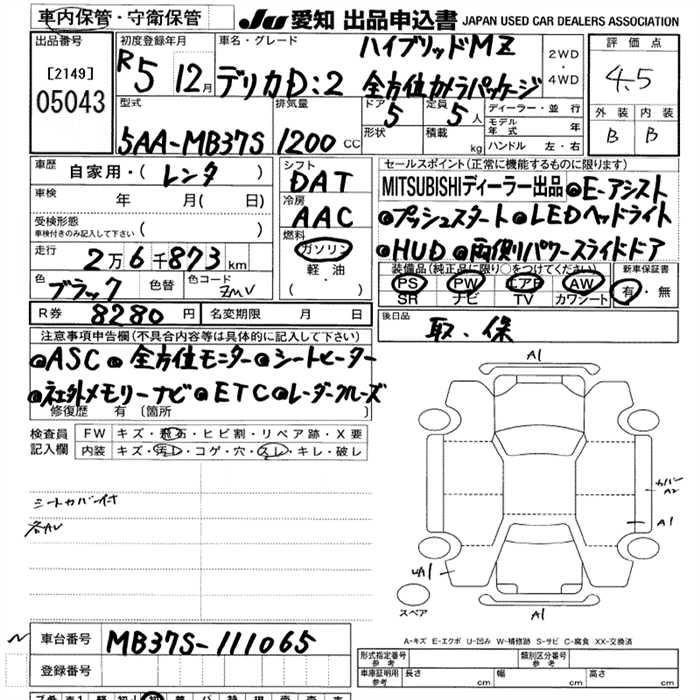 車内保管・守衛保管 JU 愛知 出品申込書 JAPAN USED CAR DEALERS ASSOCIATION
出品番号
[2149]
05043
初度登録年月
R5 12月
車名・グレード
デリカD:2 ハイブリッドMZ
全方位カメラパッケージ
2WD
・
4WD
評価点
4.5
外装 内装
B B
型式
5AA-MB37S
排気量
1200 CC
ドア
5
形状
定員
5人
積載
kg
ディーラー・並行
モデル年式 年
ハンドル 左・右
車歴
自家用・( レンタ )
車検
年 月( 日)
受検形態
車検付きのみ記入して下さい ( )
走行
2万6千873km
色
ブラック
色替
色コード
ZMV
シフト
DAT
冷房
AAC
燃料
ガソリン
・
軽油
( )
セールスポイント(正常に機能するものに限ります)
MITSUBISHIディーラー出品 ●E-アシスト
●プッシュスタート ●LEDヘッドライト
●HUD ●両側パワースライドドア
装備品(純正品に限り○をつけてください)
PS PW エアB AW
SR ナビ TV カワシート
新車保証書
有・無
R券 8280円 名変期限 月 日
後日品
取、保
注意事項申告欄(不具合内容等は具体的に記入して下さい)
●ASC ●全方位モニター ●シートヒーター
●社外メモリーナビ ●ETC ●レーダークルーズ
修復歴 有 〔箇所 〕
検査員
記入欄
FW キズ・飛石・ヒビ割・リペア跡・X要
内装 キズ・汚レ・コゲ・穴・スレ・キレ・破レ
シートカバー付
各AU
A1
カバー
A2
A1
UA1
A1
スペア
A-キズ E-エクボ U-凹み W-補修跡 S-サビ C-腐食 XX-交換済
車台番号 MB37S-111065
登録番号
形式指定番号
参考
類別区分番号
参考
車庫証明用
参考
長さ cm 幅 cm 高さ cm